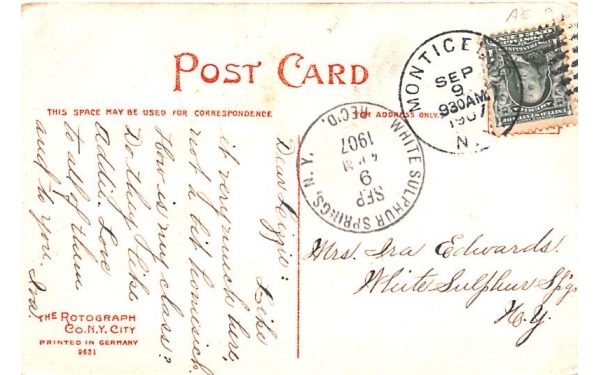 AE
POST CARD
THIS SPACE MAY BE USED FOR CORRESPONDENCE
FOR ADDRESS ONLY.
MONTICE
SEP
9
930AM
1907
N.
WHITE SULPHUR SPRINGS, N.Y.
REC'D.
SEP
9
4 PM
1907
Dear Lizzie: I like
it very much here,
not a bit homesick.
How is my class?
Do they like
Addie. Love
to all of them
and to you. Iva.
Mrs. Ira Edwards.
White Sulphur Sp'gs
N.Y.
THE ROTOGRAPH
CO. N.Y. CITY
PRINTED IN GERMANY
9631